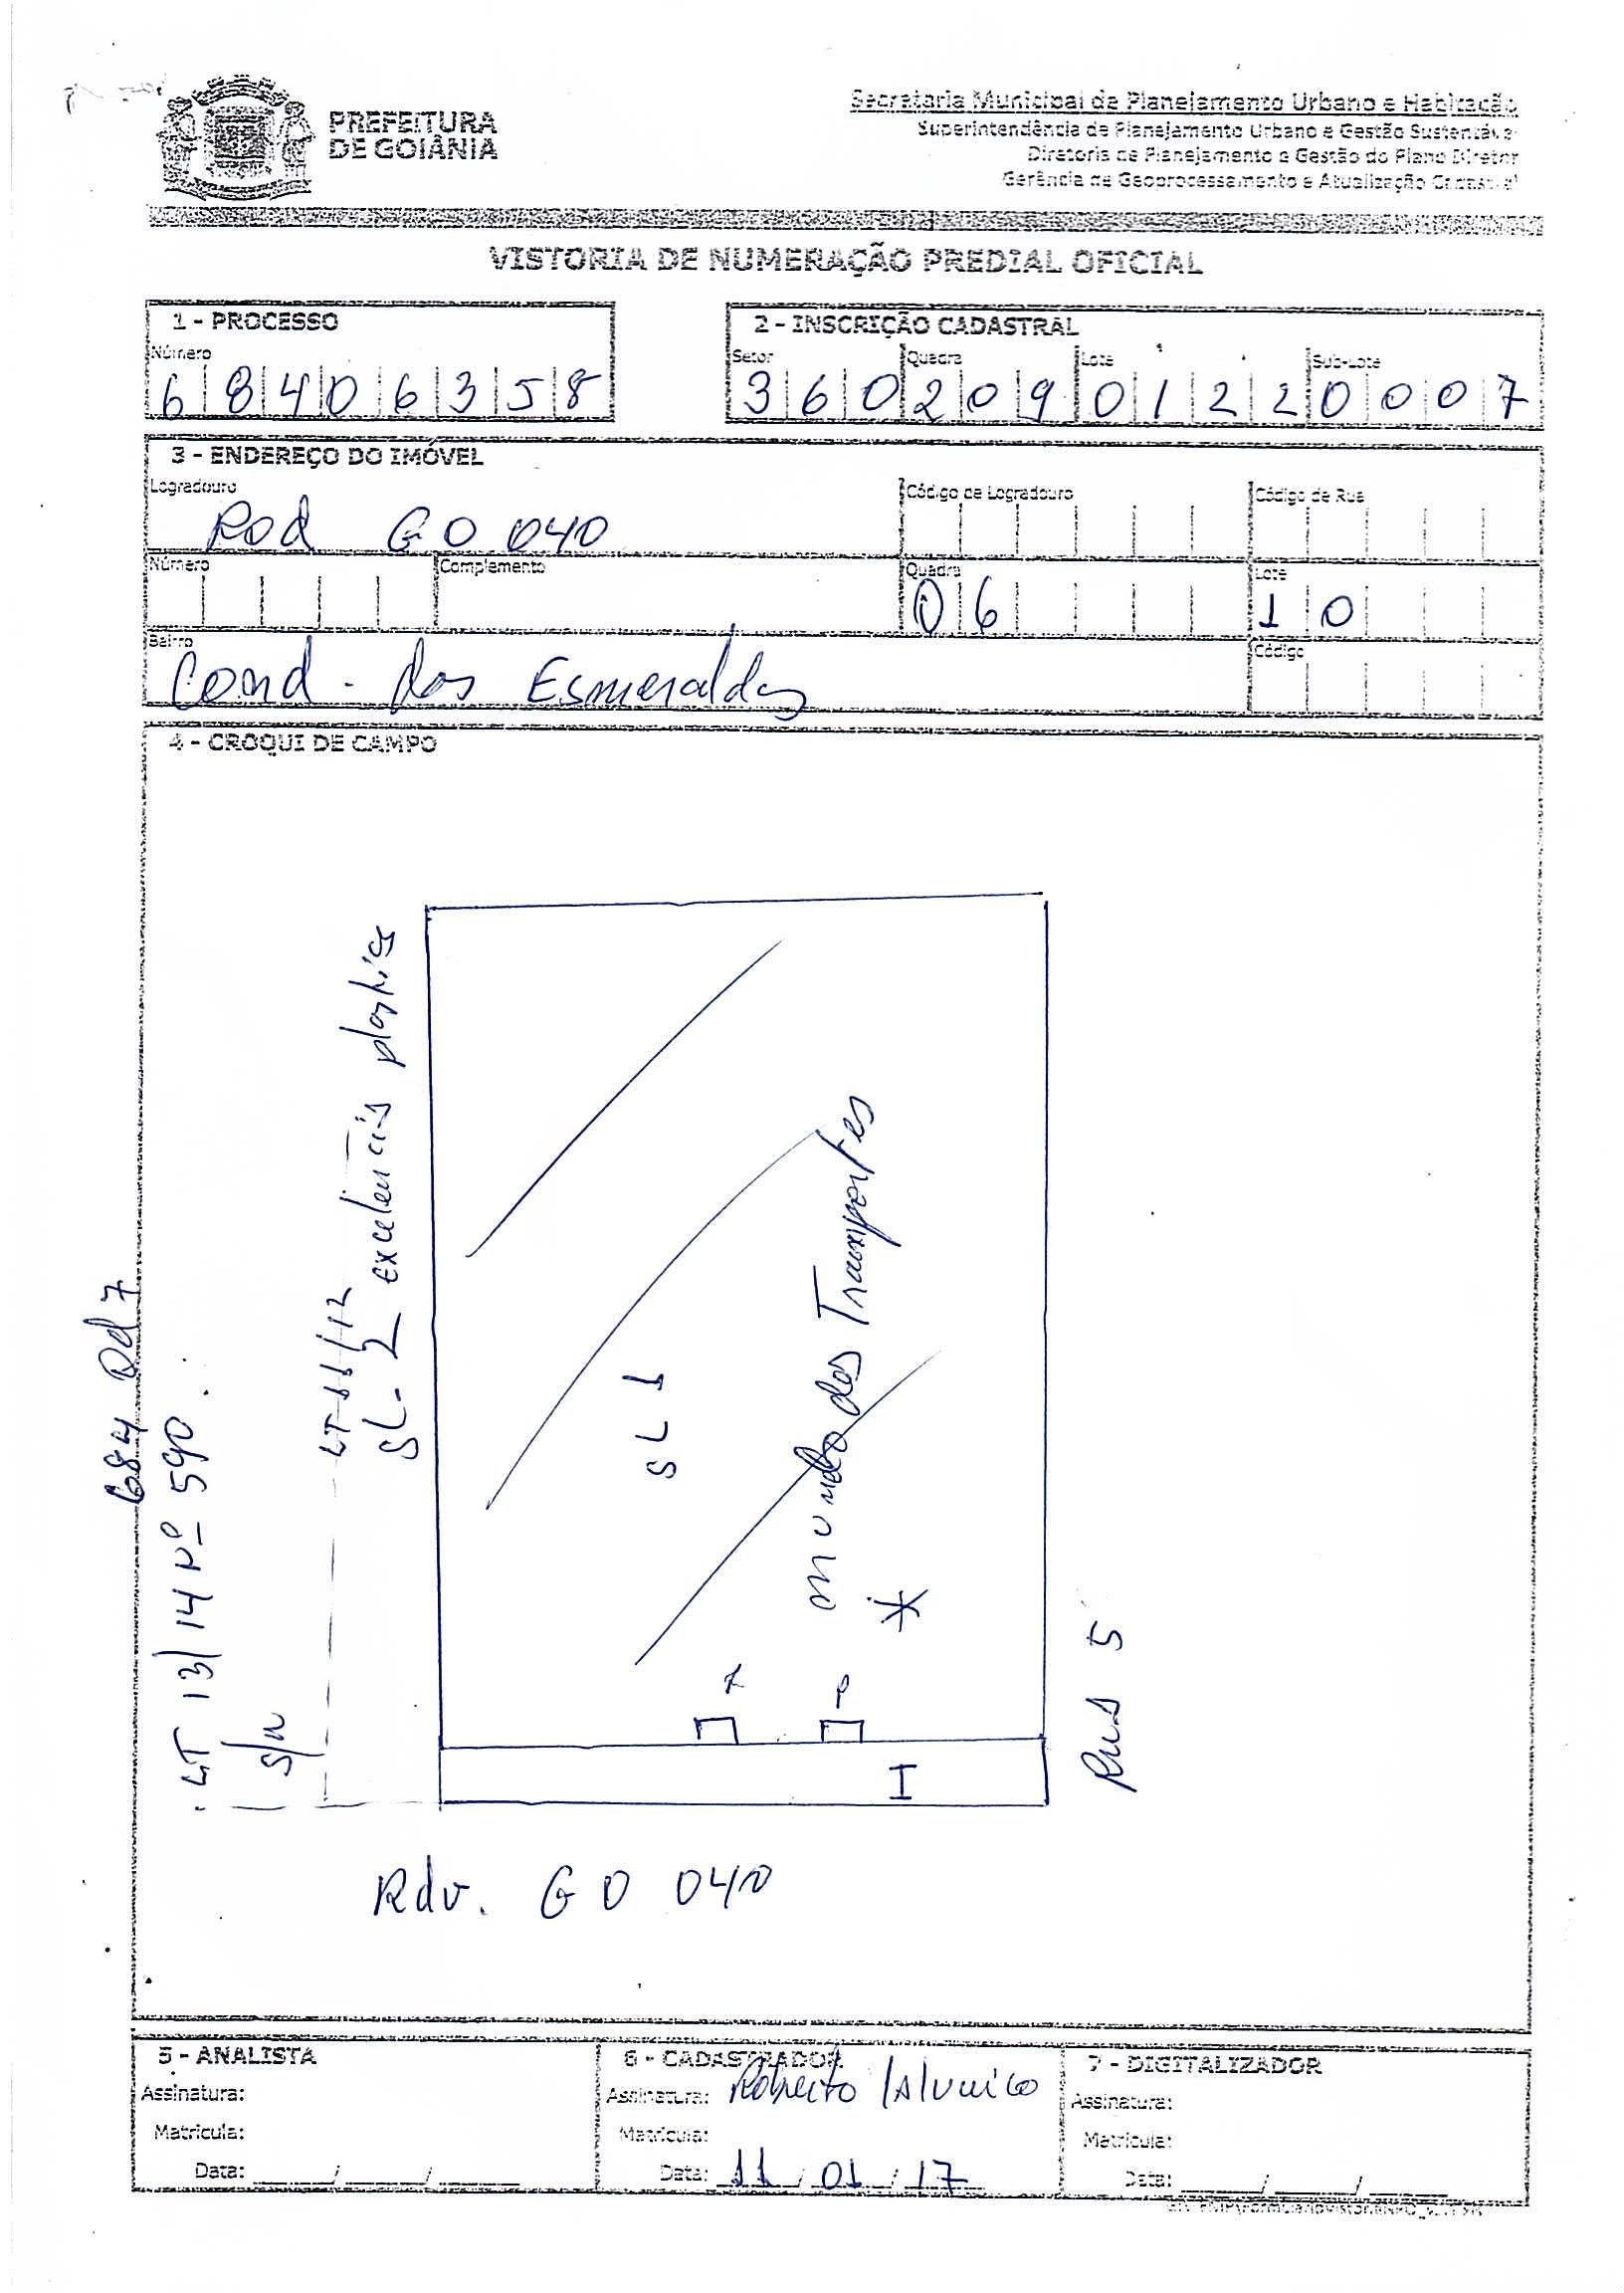 PREFEITURA
DE GOIÂNIA
Secretaria Municipal de Planejamento Urbano e Habitação
Superintendência de Planejamento Urbano e Gestão Sustentável
Diretoria de Planejamento e Gestão do Plano Diretor
Gerência de Geoprocessamento e Atualização Cadastral
VISTORIA DE NUMERAÇÃO PREDIAL OFICIAL
1 - PROCESSO
Número
6 8 4 0 6 3 5 8
2 - INSCRIÇÃO CADASTRAL
Setor Quadra Lote Sub-Lote
3 6 0 2 0 9 0 1 2 2 0 0 0 7
3 - ENDEREÇO DO IMÓVEL
Logradouro Código de Logradouro Código de Rua
Rod GO 040
Número Complemento Quadra Lote
06 10
Bairro Código
Cond. das Esmeraldas
4 - CROQUI DE CAMPO
684 Qd 7
LT 13/14 Nº 590
S/N
LT 11/12
SL-2 excelencia
SL 1
mundo dos Transportes
I
Rua 5
Rdv. GO 040
5 - ANALISTA
Assinatura:
Matrícula:
Data: ____/____/____
6 - CADASTRADOR
Assinatura: Roberto
Matrícula:
Data: 11/01/17
7 - DIGITALIZADOR
Assinatura:
Matrícula:
Data: ____/____/____